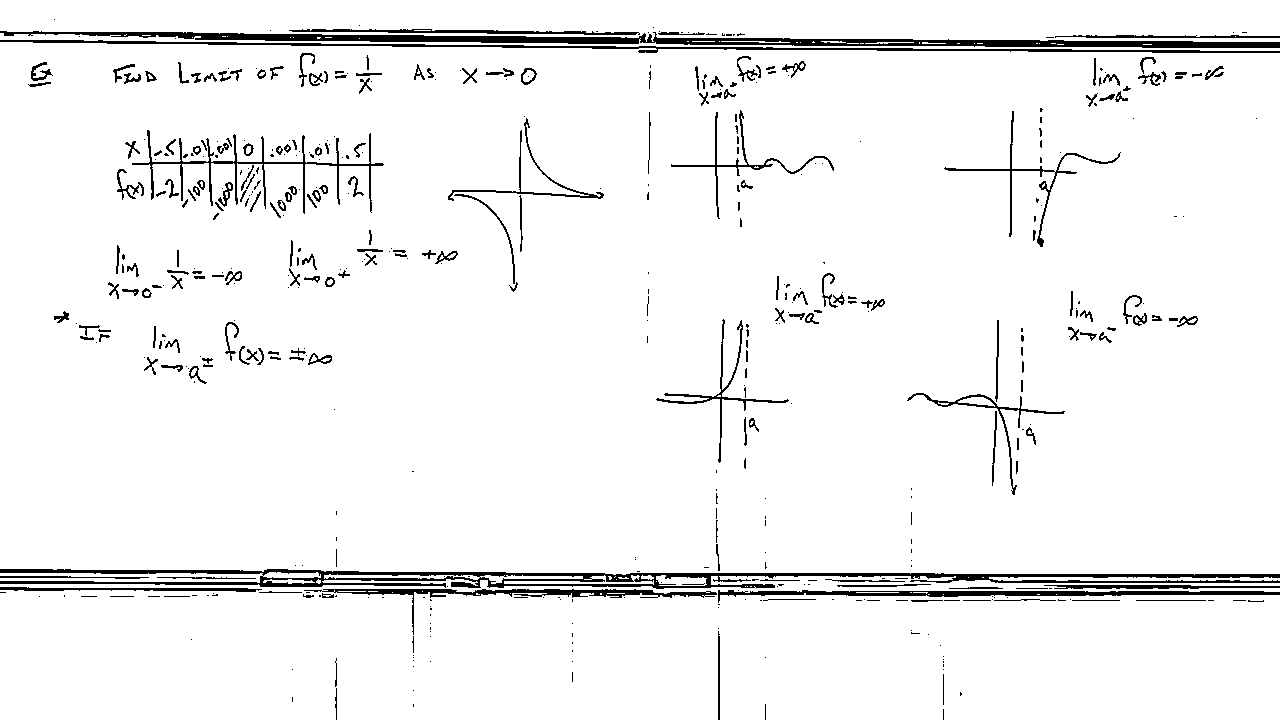 Ex FIND LIMIT OF f(x) = 1/x AS x → 0
x | -.5 | -.01 | -.001 | 0 | .001 | .01 | .5
f(x) | -2 | -100 | -1000 | | 1000 | 100 | 2
lim x→0⁻ 1/x = -∞ lim x→0⁺ 1/x = +∞
* IF lim x→a± f(x) = ±∞
lim x→a⁺ f(x) = +∞
a
lim x→a⁺ f(x) = -∞
a
lim x→a⁻ f(x) = +∞
a
lim x→a⁻ f(x) = -∞
a